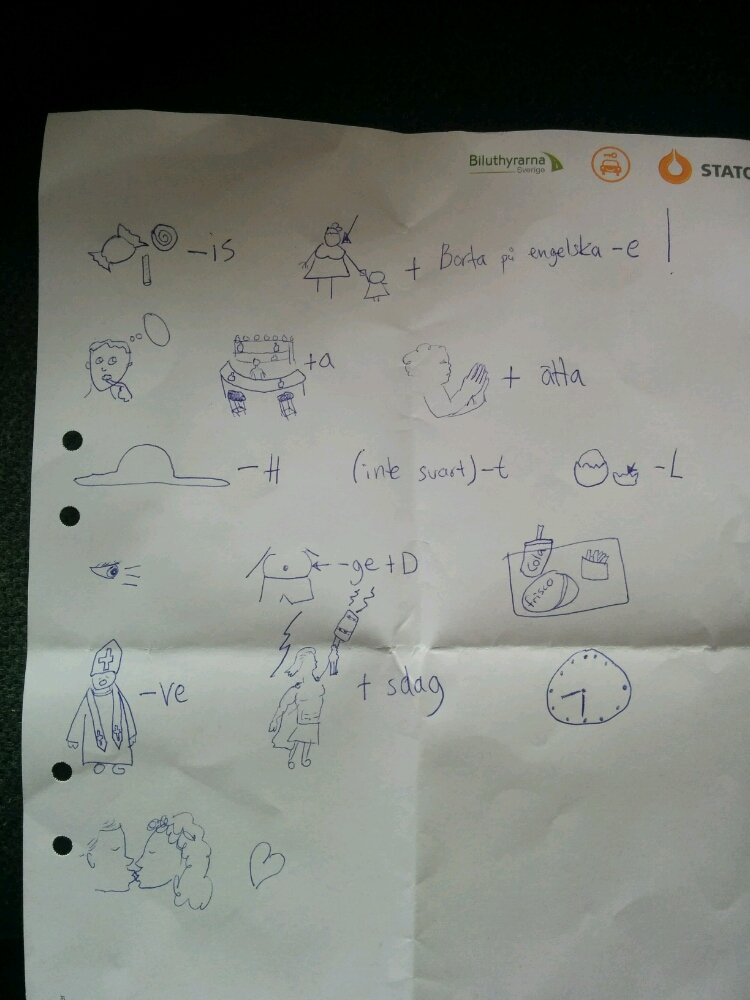 Biluthyrarna
Sverige
STATO
-is + Borta på engelska -e !
+a + atta
-H (inte svart) -t -L
-ge +D Cola frisco
-ve + sdag